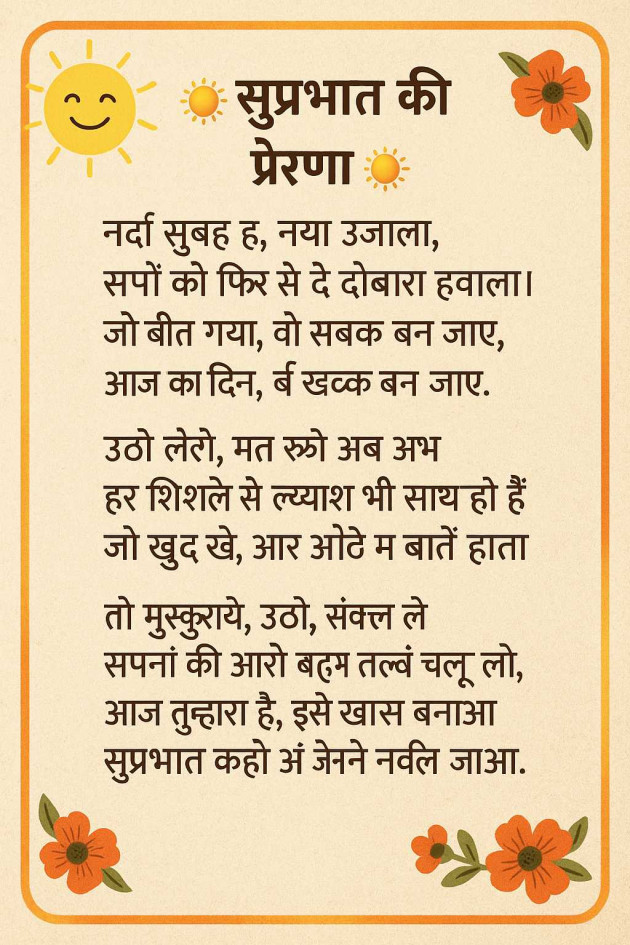 सुप्रभात की
प्रेरणा
नर्दा सुबह ह, नया उजाला,
सपों को फिर से दे दोबारा हवाला।
जो बीत गया, वो सबक बन जाए,
आज का दिन, र्ब खव्क बन जाए.
उठो लेरो, मत रुको अब अभ
हर शिशले से ल्य्याश भी साय हो हैं
जो खुद खे, आर ओठे म बातें हाता
तो मुस्कुराये, उठो, संक्ल ले
सपनां की आरो बढ़म तल्वं चलू लो,
आज तुम्हारा है, इसे खास बनाआ
सुप्रभात कहो अं जेनने नर्वल जाआ.